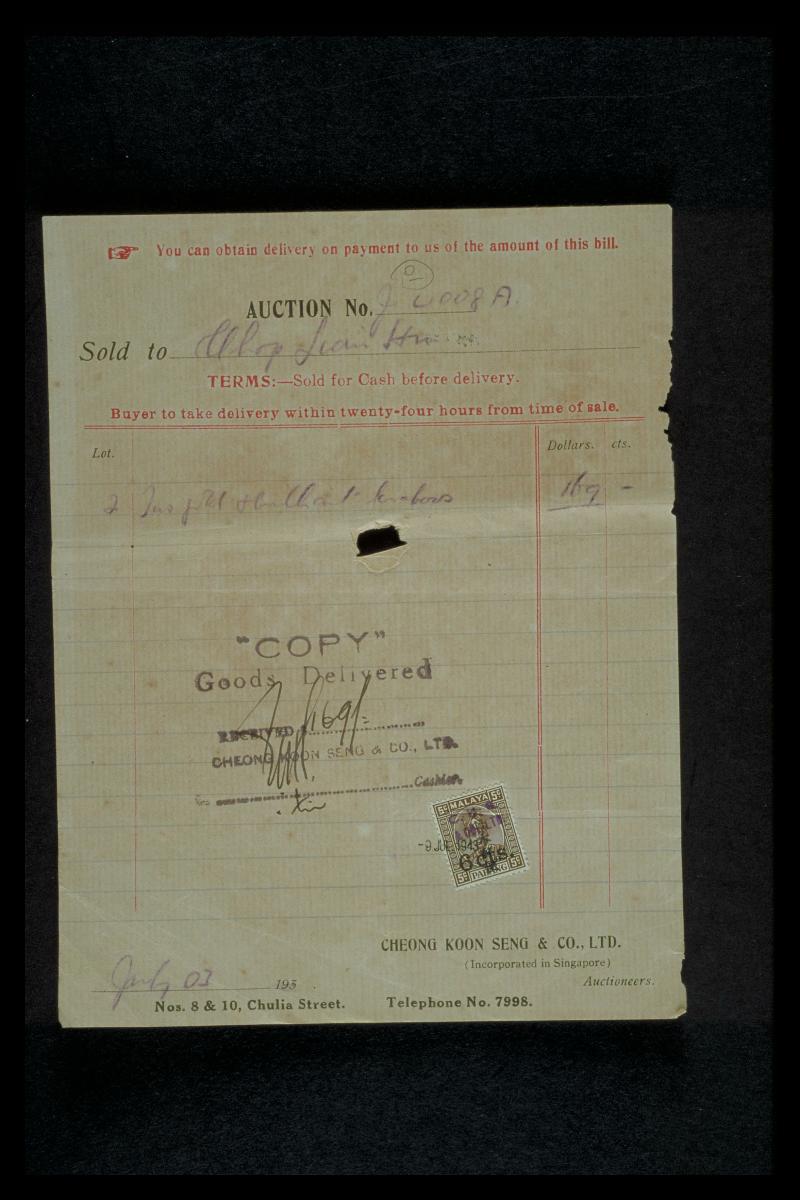 You can obtain delivery on payment to us of the amount of this bill.
AUCTION No.
Sold to Chop
TERMS:—Sold for Cash before delivery.
Buyer to take delivery within twenty-four hours from time of sale.
Lot. Dollars. cts.
2 169 -
"COPY"
Goods Delivered
RECEIVED $169/=
CHEONG KOON SENG & CO., LTD.
Cashier.
5c MALAYA 5c
-9 JUL 1943
6 cts.
5c PAHANG 5c
CHEONG KOON SENG & CO., LTD.
(Incorporated in Singapore)
July 03 193 .
Auctioneers.
Nos. 8 & 10, Chulia Street. Telephone No. 7998.